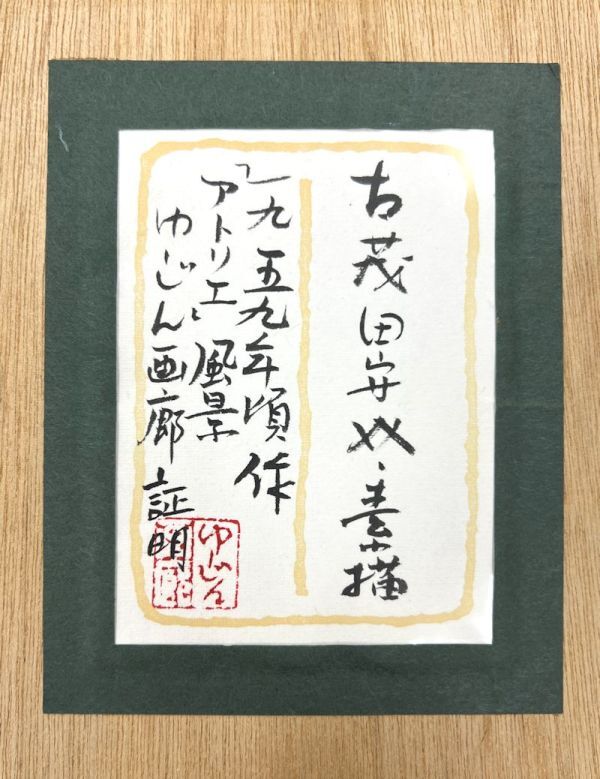 古茂田守介、素描
「一九五九年頃作
アトリエ、風景
ゆーじん画廊 証明
ゆーじん